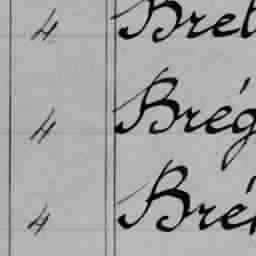 4 Bret
4 Brég
4 Bré